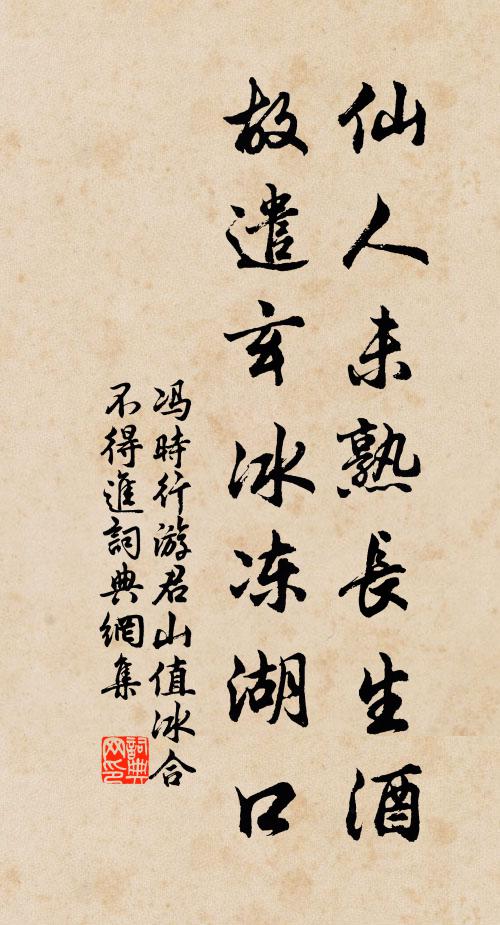 仙人未熟長生酒
故遣玄冰冻湖口
冯時行游君山值冰合
不得進詞典網集
詞典网印